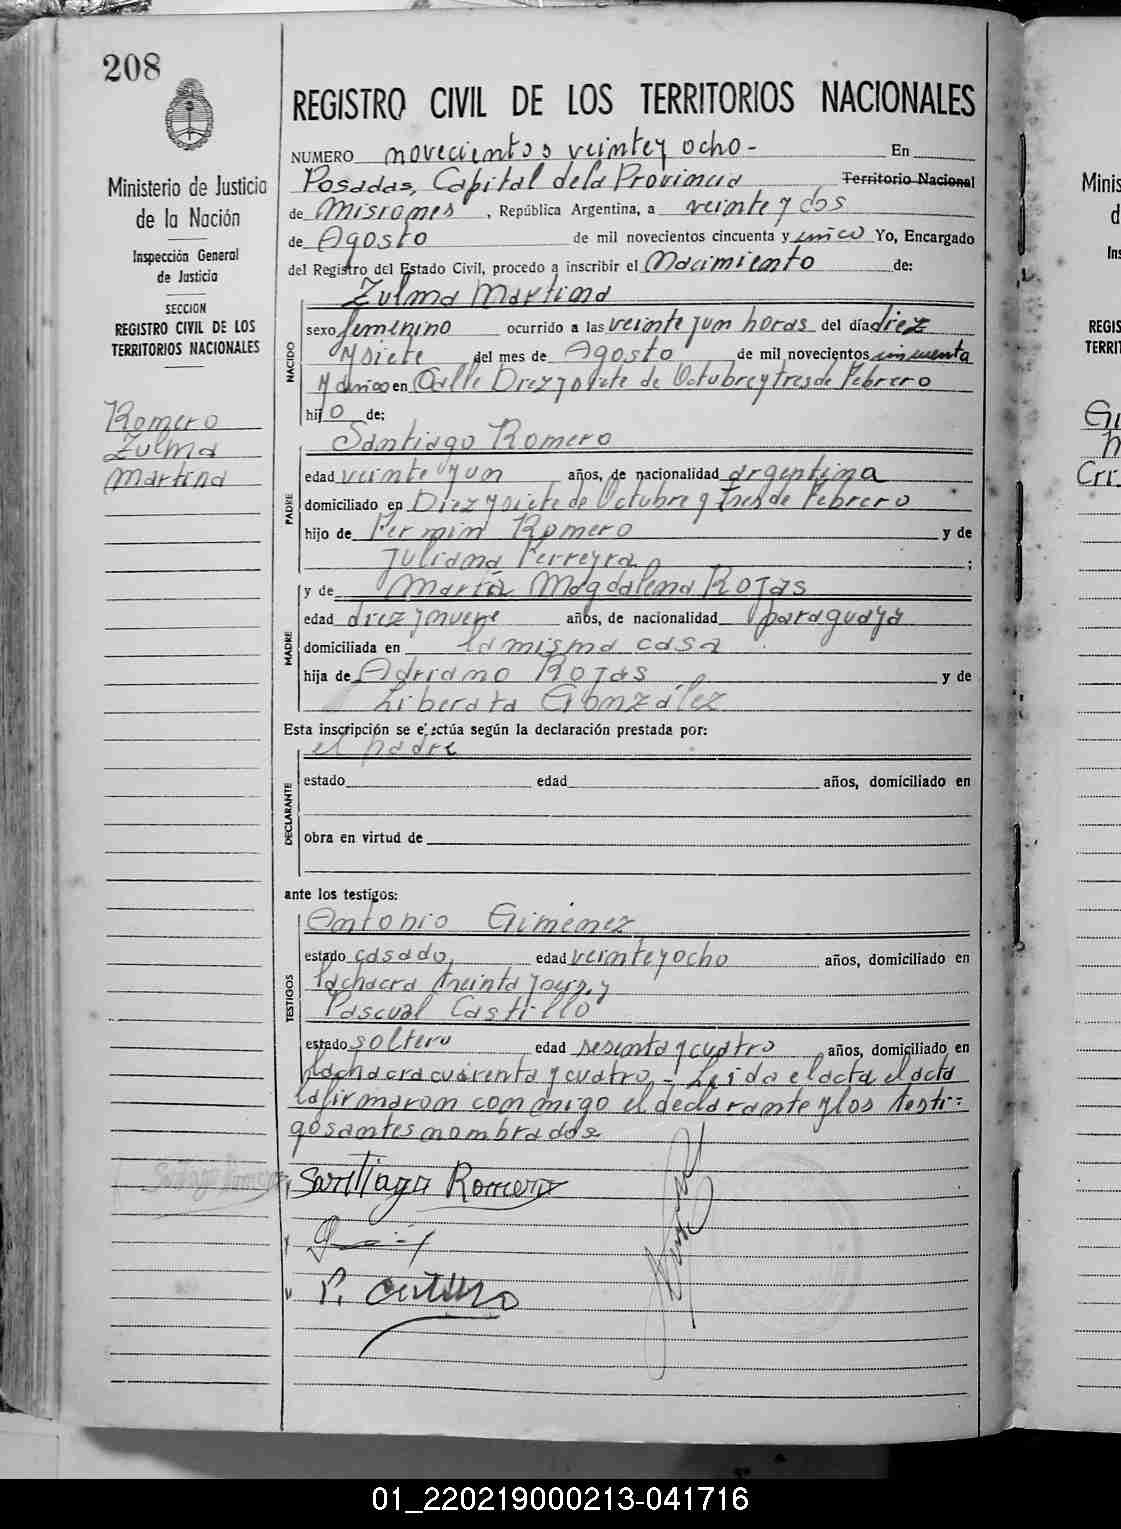 208
Ministerio de Justicia
de la Nación
Inspección General
de Justicia
SECCION
REGISTRO CIVIL DE LOS
TERRITORIOS NACIONALES
Romero
Zulma
Martina
REGISTRO CIVIL DE LOS TERRITORIOS NACIONALES
NUMERO novecientos veinte y ocho - En
Posadas, Capital de la Provincia Territorio Nacional
de Misiones, República Argentina, a veinte y dos
de Agosto de mil novecientos cincuenta y cinco Yo, Encargado
del Registro del Estado Civil, procedo a inscribir el Nacimiento de:
NACIDO
Zulma Martina
sexo femenino ocurrido a las veinte y un horas del día diez
y siete del mes de Agosto de mil novecientos cincuenta
y cinco en Calle Diez y siete de Octubre y tres de Febrero
hijo de:
PADRE
Santiago Romero
edad veinte y un años, de nacionalidad argentina
domiciliado en Diez y siete de Octubre y tres de Febrero
hijo de Fermin Romero y de
Juliana Ferreyra ;
MADRE
y de María Magdalena Rojas
edad diez y nueve años, de nacionalidad paraguaya
domiciliada en la misma casa
hija de Adriano Rojas y de
Liberata González
Esta inscripción se efectúa según la declaración prestada por:
DECLARANTE
el padre
estado edad años, domiciliado en
obra en virtud de
ante los testigos:
TESTIGOS
Antonio Gimenez
estado casado, edad veinte y ocho años, domiciliado en
la chacra treinta y y
Pascual Castillo
estado soltero edad sesenta y cuatro años, domiciliado en
la chacra cuarenta y cuatro - Leida el acta el acta
la firmaron conmigo el declarante y los testi=
gos antes nombrados
Santiago Romero
P. Castillo
Minis
d
Ins
REGIS
TERRI
01_220219000213-041716